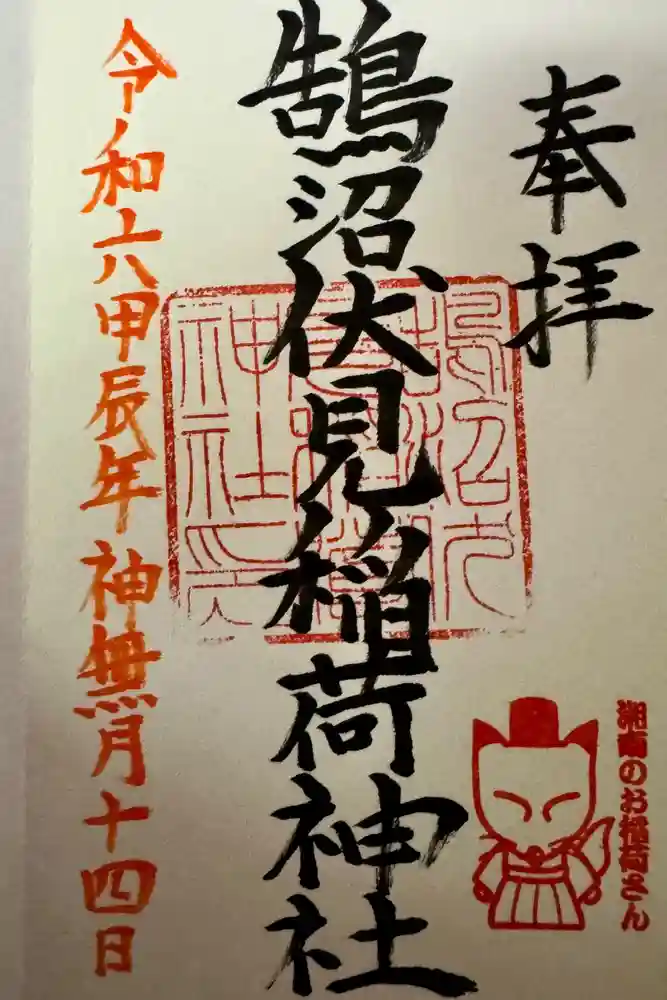 奉拝
鵠沼伏見稲荷神社
令和六甲辰年神無月十四日
湘南のお稲荷さん